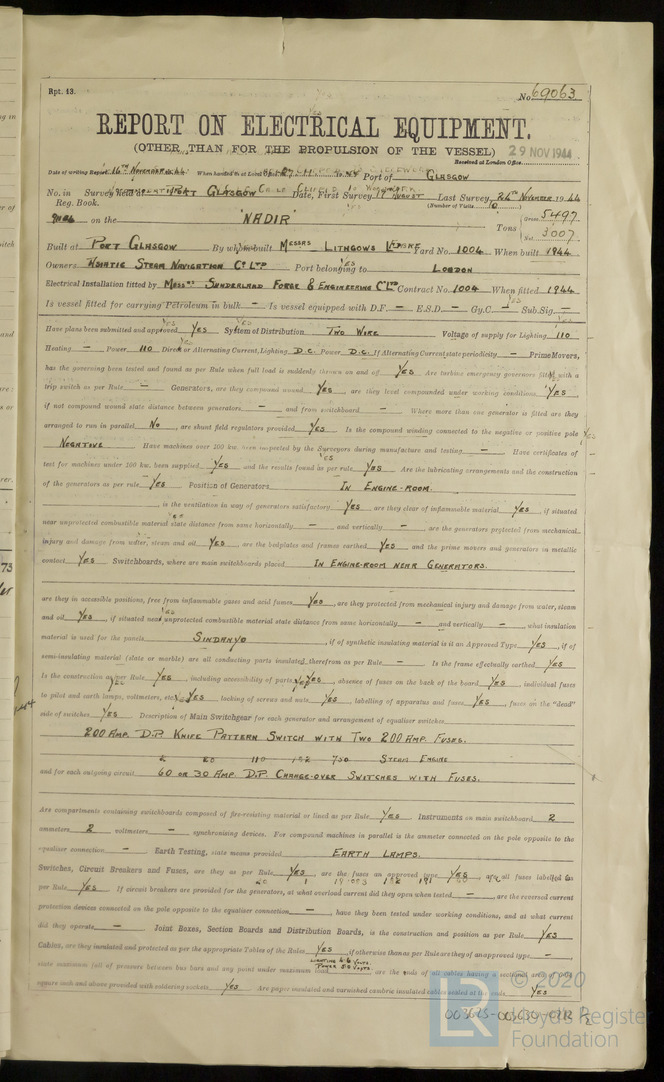 Rpt. 13.
No. 69063
REPORT ON ELECTRICAL EQUIPMENT.
(OTHER THAN FOR THE PROPULSION OF THE VESSEL)
29 NOV 1944
Received at London Office
Date of writing Report 16TH NOVEMBER 1944 When handed in at Local Office 19 Port of GLASGOW
No. in Survey held at PORT GLASGOW Date, First Survey 17TH AUGUST Last Survey, 24TH NOVEMBER 1944
Reg. Book. (Number of Visits 10)
on the "NADIR" Tons Gross 5497
Net 3007
Built at PORT GLASGOW By whom built MESSRS LITHGOWS LTD Yard No. 1004 When built 1944
Owners ASIATIC STEAM NAVIGATION CO LTD Port belonging to LONDON
Electrical Installation fitted by MESSRS SUNDERLAND FORGE & ENGINEERING CO LTD Contract No. 1004 When fitted 1944
Is vessel fitted for carrying Petroleum in bulk — Is vessel equipped with D.F. — E.S.D. — Gy.C. — Sub.Sig. —
Have plans been submitted and approved YES System of Distribution TWO WIRE Voltage of supply for Lighting 110
Heating — Power 110 Direct or Alternating Current, Lighting D.C. Power D.C. If Alternating Current state periodicity — Prime Movers,
has the governing been tested and found as per Rule when full load is suddenly thrown on and off YES Are turbine emergency governors fitted with a
trip switch as per Rule — Generators, are they compound wound YES, are they level compounded under working conditions YES,
if not compound wound state distance between generators — and from switchboard — Where more than one generator is fitted are they
arranged to run in parallel NO, are shunt field regulators provided YES Is the compound winding connected to the negative or positive pole
NEGATIVE Have machines over 100 kw. been inspected by the Surveyors during manufacture and testing — Have certificates of
test for machines under 100 kw. been supplied YES and the results found as per rule YES Are the lubricating arrangements and the construction
of the generators as per rule YES Position of Generators IN ENGINE-ROOM.
is the ventilation in way of generators satisfactory YES are they clear of inflammable material YES, if situated
near unprotected combustible material state distance from same horizontally — and vertically —, are the generators protected from mechanical
injury and damage from water, steam and oil YES, are the bedplates and frames earthed YES and the prime movers and generators in metallic
contact YES Switchboards, where are main switchboards placed IN ENGINE-ROOM NEAR GENERATORS.
are they in accessible positions, free from inflammable gases and acid fumes YES, are they protected from mechanical injury and damage from water, steam
and oil YES, if situated near unprotected combustible material state distance from same horizontally — and vertically —, what insulation
material is used for the panels SINDANYO, if of synthetic insulating material is it an Approved Type YES, if of
semi-insulating material (slate or marble) are all conducting parts insulated therefrom as per Rule — Is the frame effectually earthed YES
Is the construction as per Rule YES, including accessibility of parts YES, absence of fuses on the back of the board YES, individual fuses
to pilot and earth lamps, voltmeters, etc. YES locking of screws and nuts YES, labelling of apparatus and fuses YES, fuses on the "dead"
side of switches YES Description of Main Switchgear for each generator and arrangement of equaliser switches
200 AMP. D.P. KNIFE PATTERN SWITCH WITH TWO 200 AMP. FUSES.
and for each outgoing circuit 60 OR 30 AMP D.P. CHANGE-OVER SWITCHES WITH FUSES.
Are compartments containing switchboards composed of fire-resisting material or lined as per Rule YES Instruments on main switchboard 2
ammeters 2 voltmeters — synchronising devices. For compound machines in parallel is the ammeter connected on the pole opposite to the
equaliser connection — Earth Testing, state means provided EARTH LAMPS.
Switches, Circuit Breakers and Fuses, are they as per Rule YES, are the fuses an approved type YES, are all fuses labelled as
per Rule YES If circuit breakers are provided for the generators, at what overload current did they open when tested —, are the reversed current
protection devices connected on the pole opposite to the equaliser connection —, have they been tested under working conditions, and at what current
did they operate — Joint Boxes, Section Boards and Distribution Boards, is the construction and position as per Rule YES
Cables, are they insulated and protected as per the appropriate Tables of the Rules YES, if otherwise than as per Rule are they of an approved type —,
state maximum fall of pressure between bus bars and any point under maximum load, are the ends of all cables having a sectional area of 0.04
square inch and above provided with soldering sockets YES Are paper insulated and varnished cambric insulated cables sealed at the ends YES
© 2020
Lloyd's Register
Foundation
LR